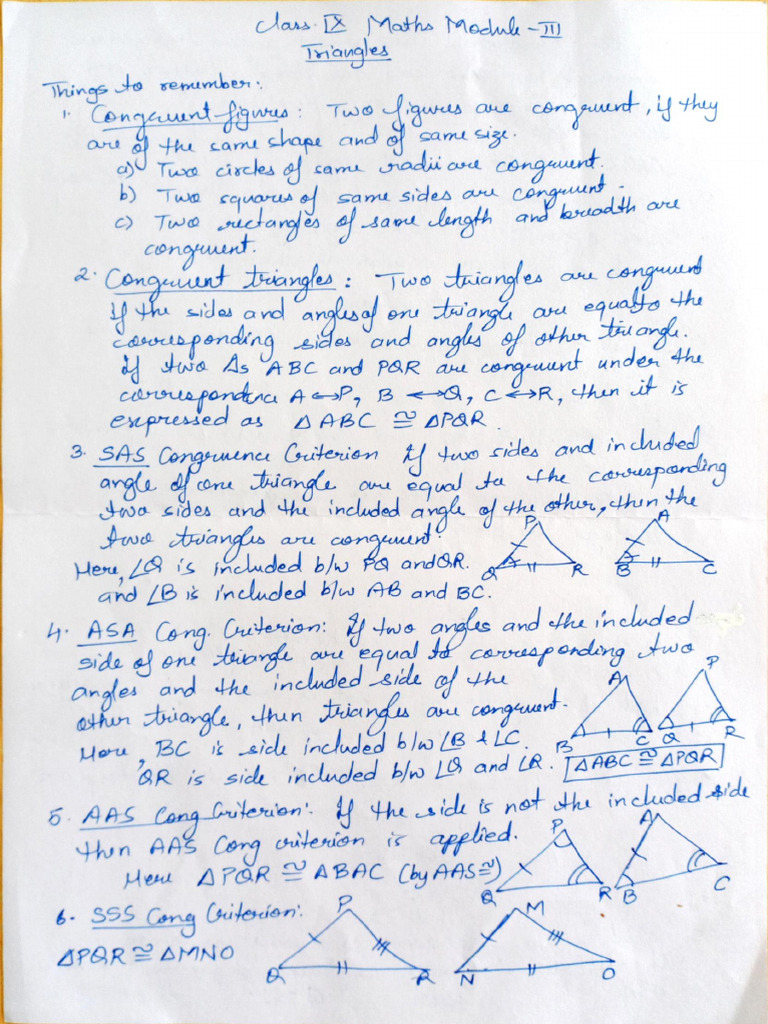 Class IX Maths Module - III
Triangles
Things to remember:
1. Congruent figures: Two figures are congruent, if they
are of the same shape and of same size.
a) Two circles of same radii are congruent.
b) Two squares of same sides are congruent.
c) Two rectangles of same length and breadth are
congruent.
2. Congruent triangles: Two triangles are congruent
if the sides and angles of one triangle are equal to the
corresponding sides and angles of other triangle.
If two Δs ABC and PQR are congruent under the
correspondence A ↔ P, B ↔ Q, C ↔ R, then it is
expressed as Δ ABC ≅ ΔPQR.
3. SAS Congruence Criterion If two sides and included
angle of one triangle are equal to the corresponding
two sides and the included angle of the other, then the
two triangles are congruent.
Here, ∠Q is included b/w PQ and QR.
and ∠B is included b/w AB and BC.
P
Q R
A
B C
4. ASA Cong. Criterion: If two angles and the included
side of one triangle are equal to corresponding two
angles and the included side of the
other triangle, then triangles are congruent.
Here, BC is side included b/w ∠B & ∠C.
QR is side included b/w ∠Q and ∠R.
A
B C
P
Q R
ΔABC ≅ ΔPQR
5. AAS Cong Criterion: If the side is not the included side
then AAS Cong criterion is applied.
Here ΔPQR ≅ ΔBAC (by AAS ≅)
P
Q R
A
B C
6. SSS Cong Criterion:
ΔPQR ≅ ΔMNO
P
Q R
M
N O